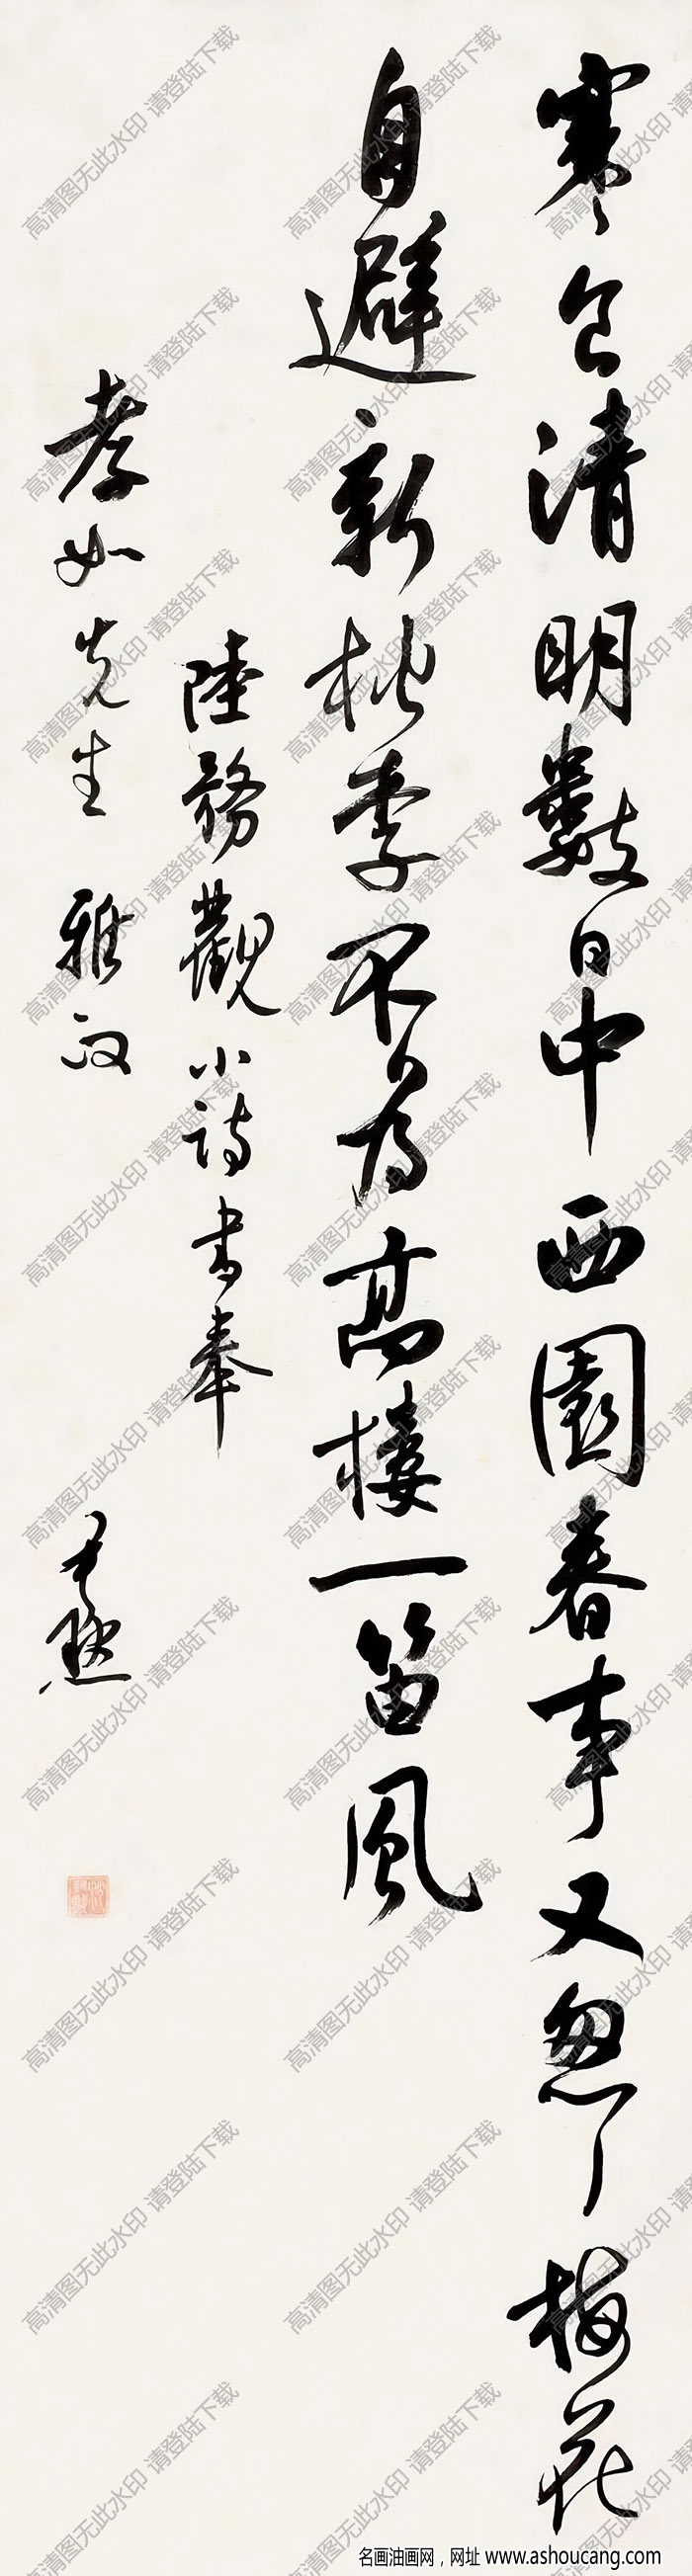 寒食清明數日中西園春事又怱〻梅花
自避新桃李不為高樓一笛風
陸務觀小詩書奉
孝如先生 雅政 尹默
高清图无此水印 请登陆下载
名画油画网，网址 www.ashoucang.com